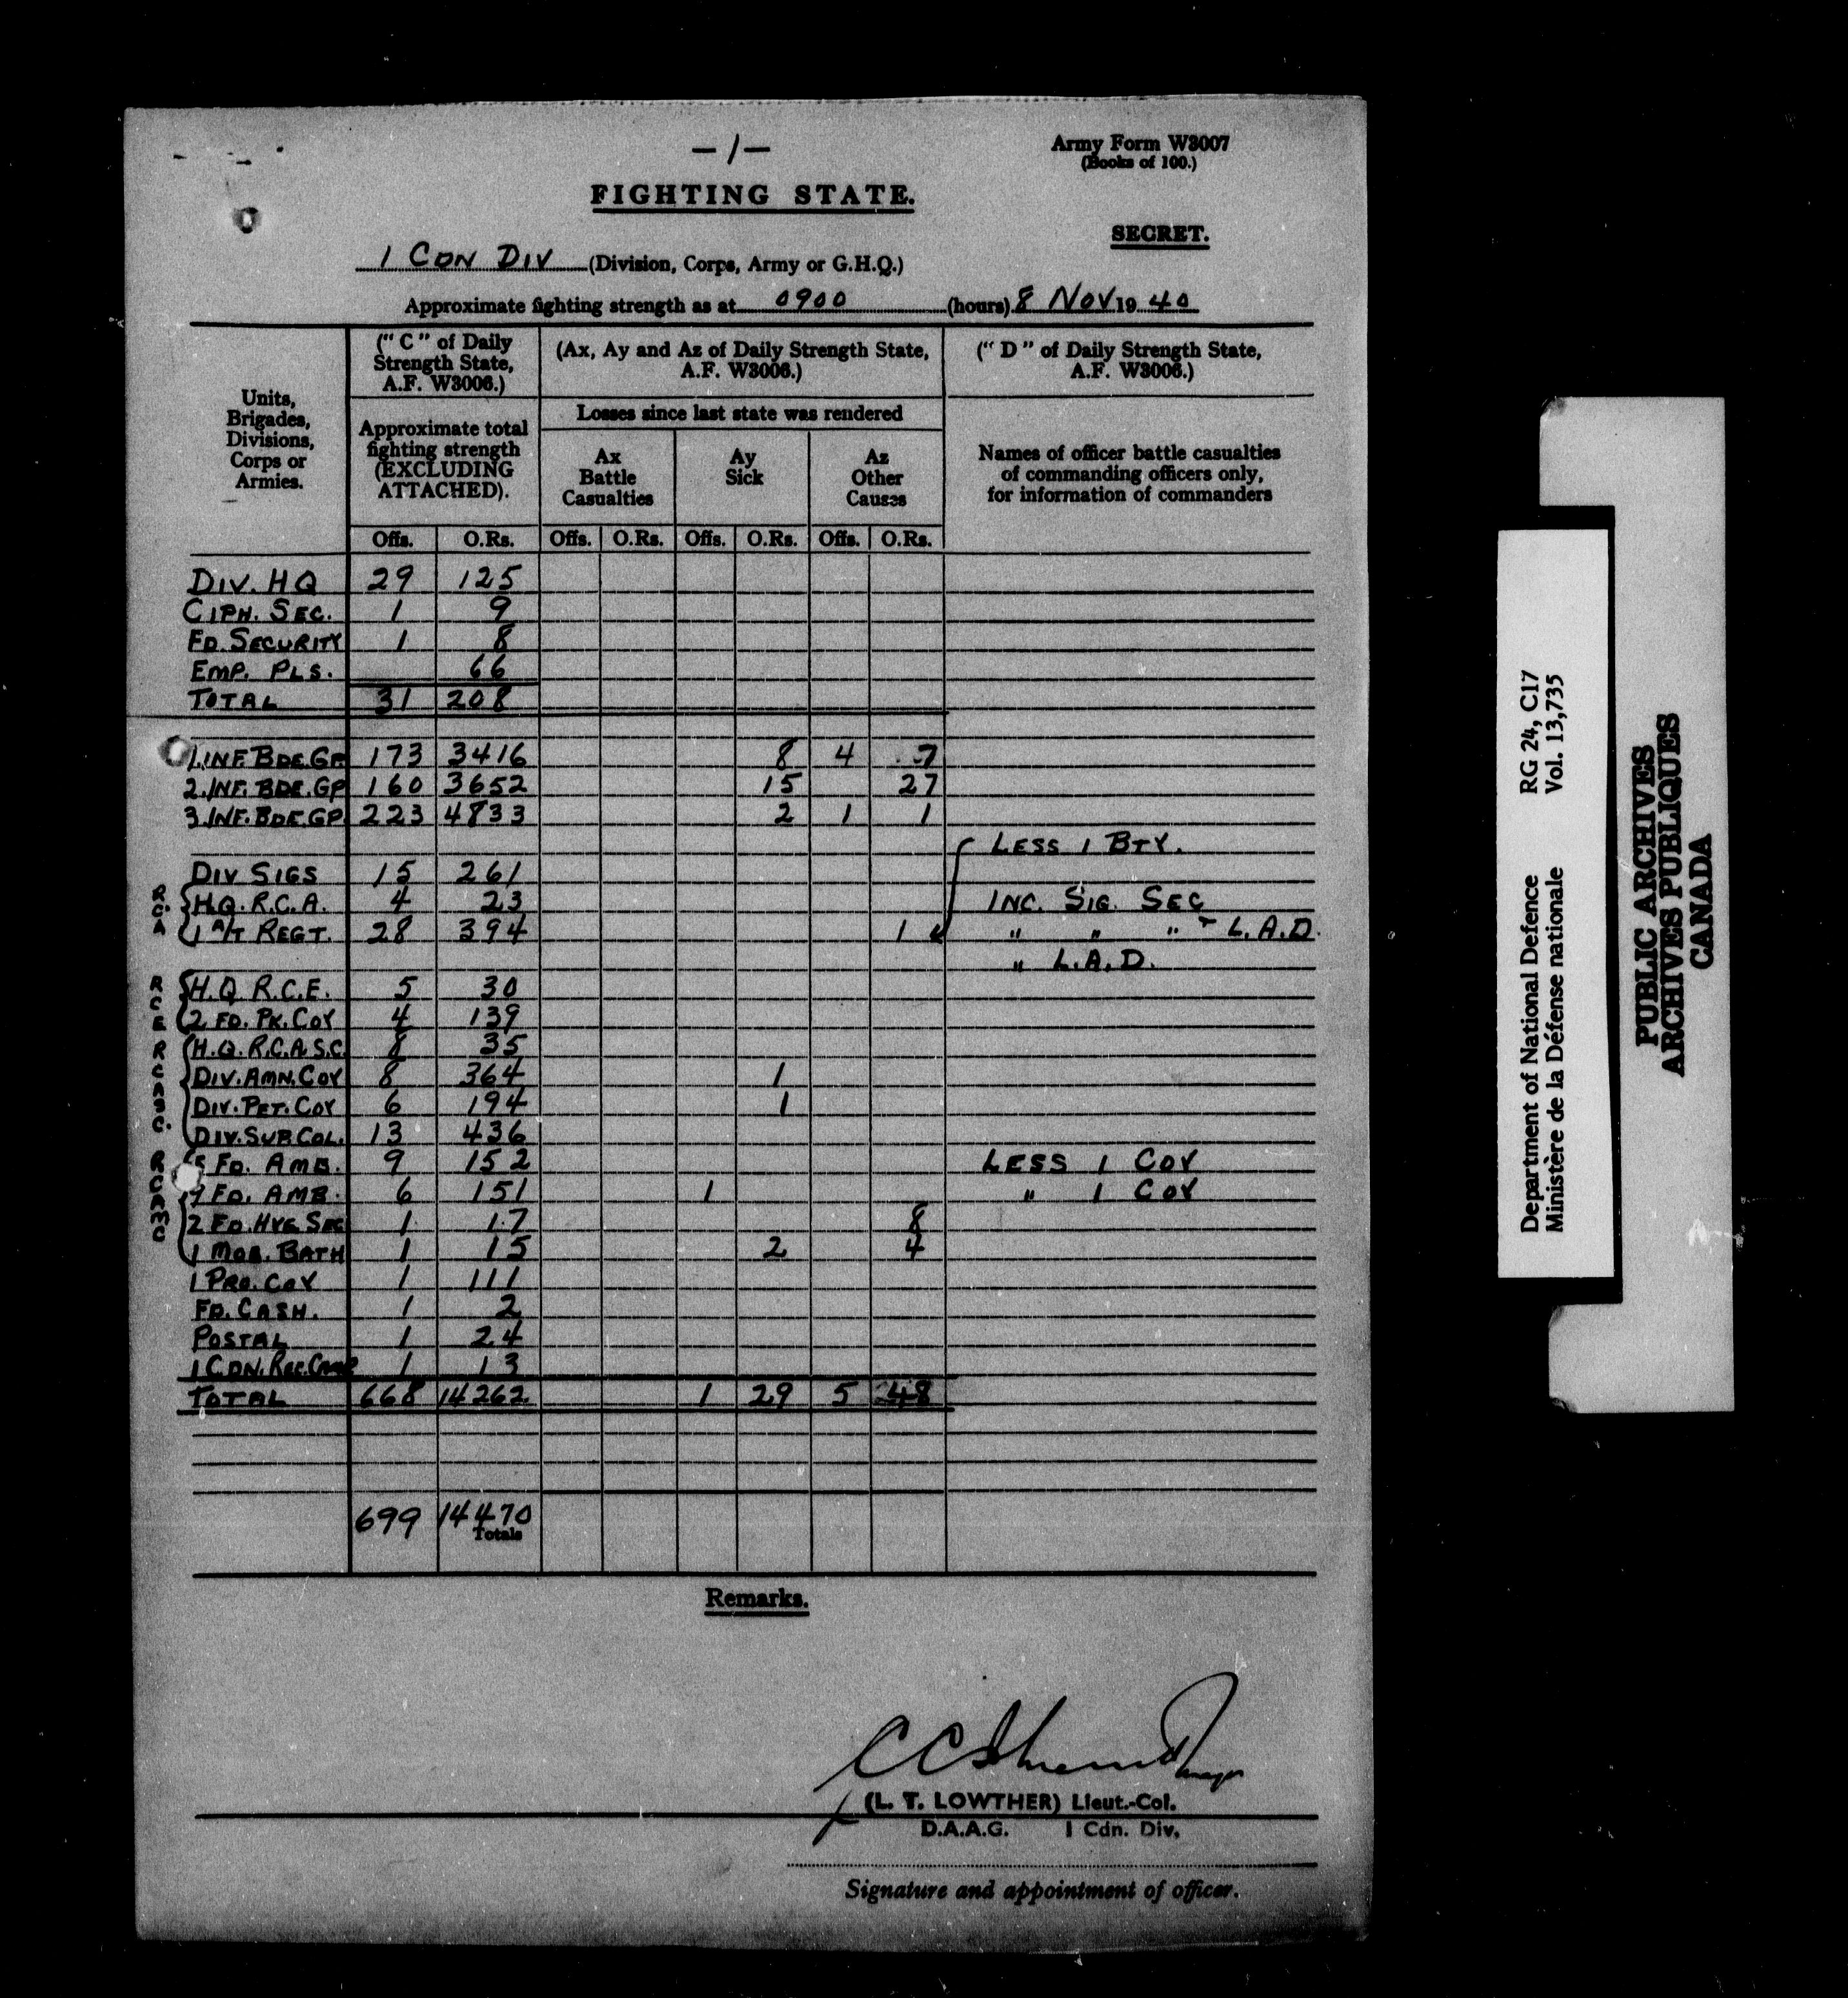 — 1 —
Army Form W3007
(Books of 100.)
FIGHTING STATE.
SECRET.
1 CDN DIV (Division, Corps, Army or G.H.Q.)
Approximate fighting strength as at 0900 (hours) 8 NOV 19 40
Units, Brigades, Divisions, Corps or Armies.
("C" of Daily Strength State, A.F. W3006.)
(Ax, Ay and Az of Daily Strength State, A.F. W3006.)
("D" of Daily Strength State, A.F. W3006.)
Approximate total fighting strength (EXCLUDING ATTACHED).
Losses since last state was rendered
Ax Battle Casualties
Ay Sick
Az Other Causes
Names of officer battle casualties of commanding officers only, for information of commanders
Offs. O.Rs. Offs. O.Rs. Offs. O.Rs. Offs. O.Rs.
DIV. HQ 29 125
CIPH. SEC. 1 9
FD. SECURITY 1 8
EMP. PLS. 66
TOTAL 31 208
1. INF. BDE. GP 173 3416 8 4 7
2. INF. BDE. GP 160 3652 15 27
3. INF. BDE. GP 223 4833 2 1 1
LESS 1 BTY.
DIV SIGS 15 261
RCA
H.Q. R.C.A. 4 23 INC. SIG. SEC
1 A/T REGT. 28 394 1 " " " + L.A.D.
" L.A.D.
RCE
H.Q. R.C.E. 5 30
2 FD. PK. COY 4 139
RCASC.
H.Q. R.C.A.S.C. 8 35
DIV. AMN. COY 8 364 1
DIV. PET. COY 6 194 1
DIV. SUP. COL. 13 436
RCAMC
5 FD. AMB. 9 152 LESS 1 COY
9 FD. AMB. 6 151 1 " 1 COY
2 FD. HYG. SEC 1 17 8
1 MOB. BATH 1 15 2 4
1 PRO. COY 1 111
FD. CASH. 1 2
POSTAL 1 24
1 CDN. REC. CAMP 1 13
TOTAL 668 14262 1 29 5 48
699 14470
Totals
Remarks.
(L. T. LOWTHER) Lieut.-Col.
D.A.A.G. 1 Cdn. Div.
Signature and appointment of officer.
Department of National Defence RG 24, C17
Ministère de la Défense nationale Vol. 13,735
PUBLIC ARCHIVES
ARCHIVES PUBLIQUES
CANADA